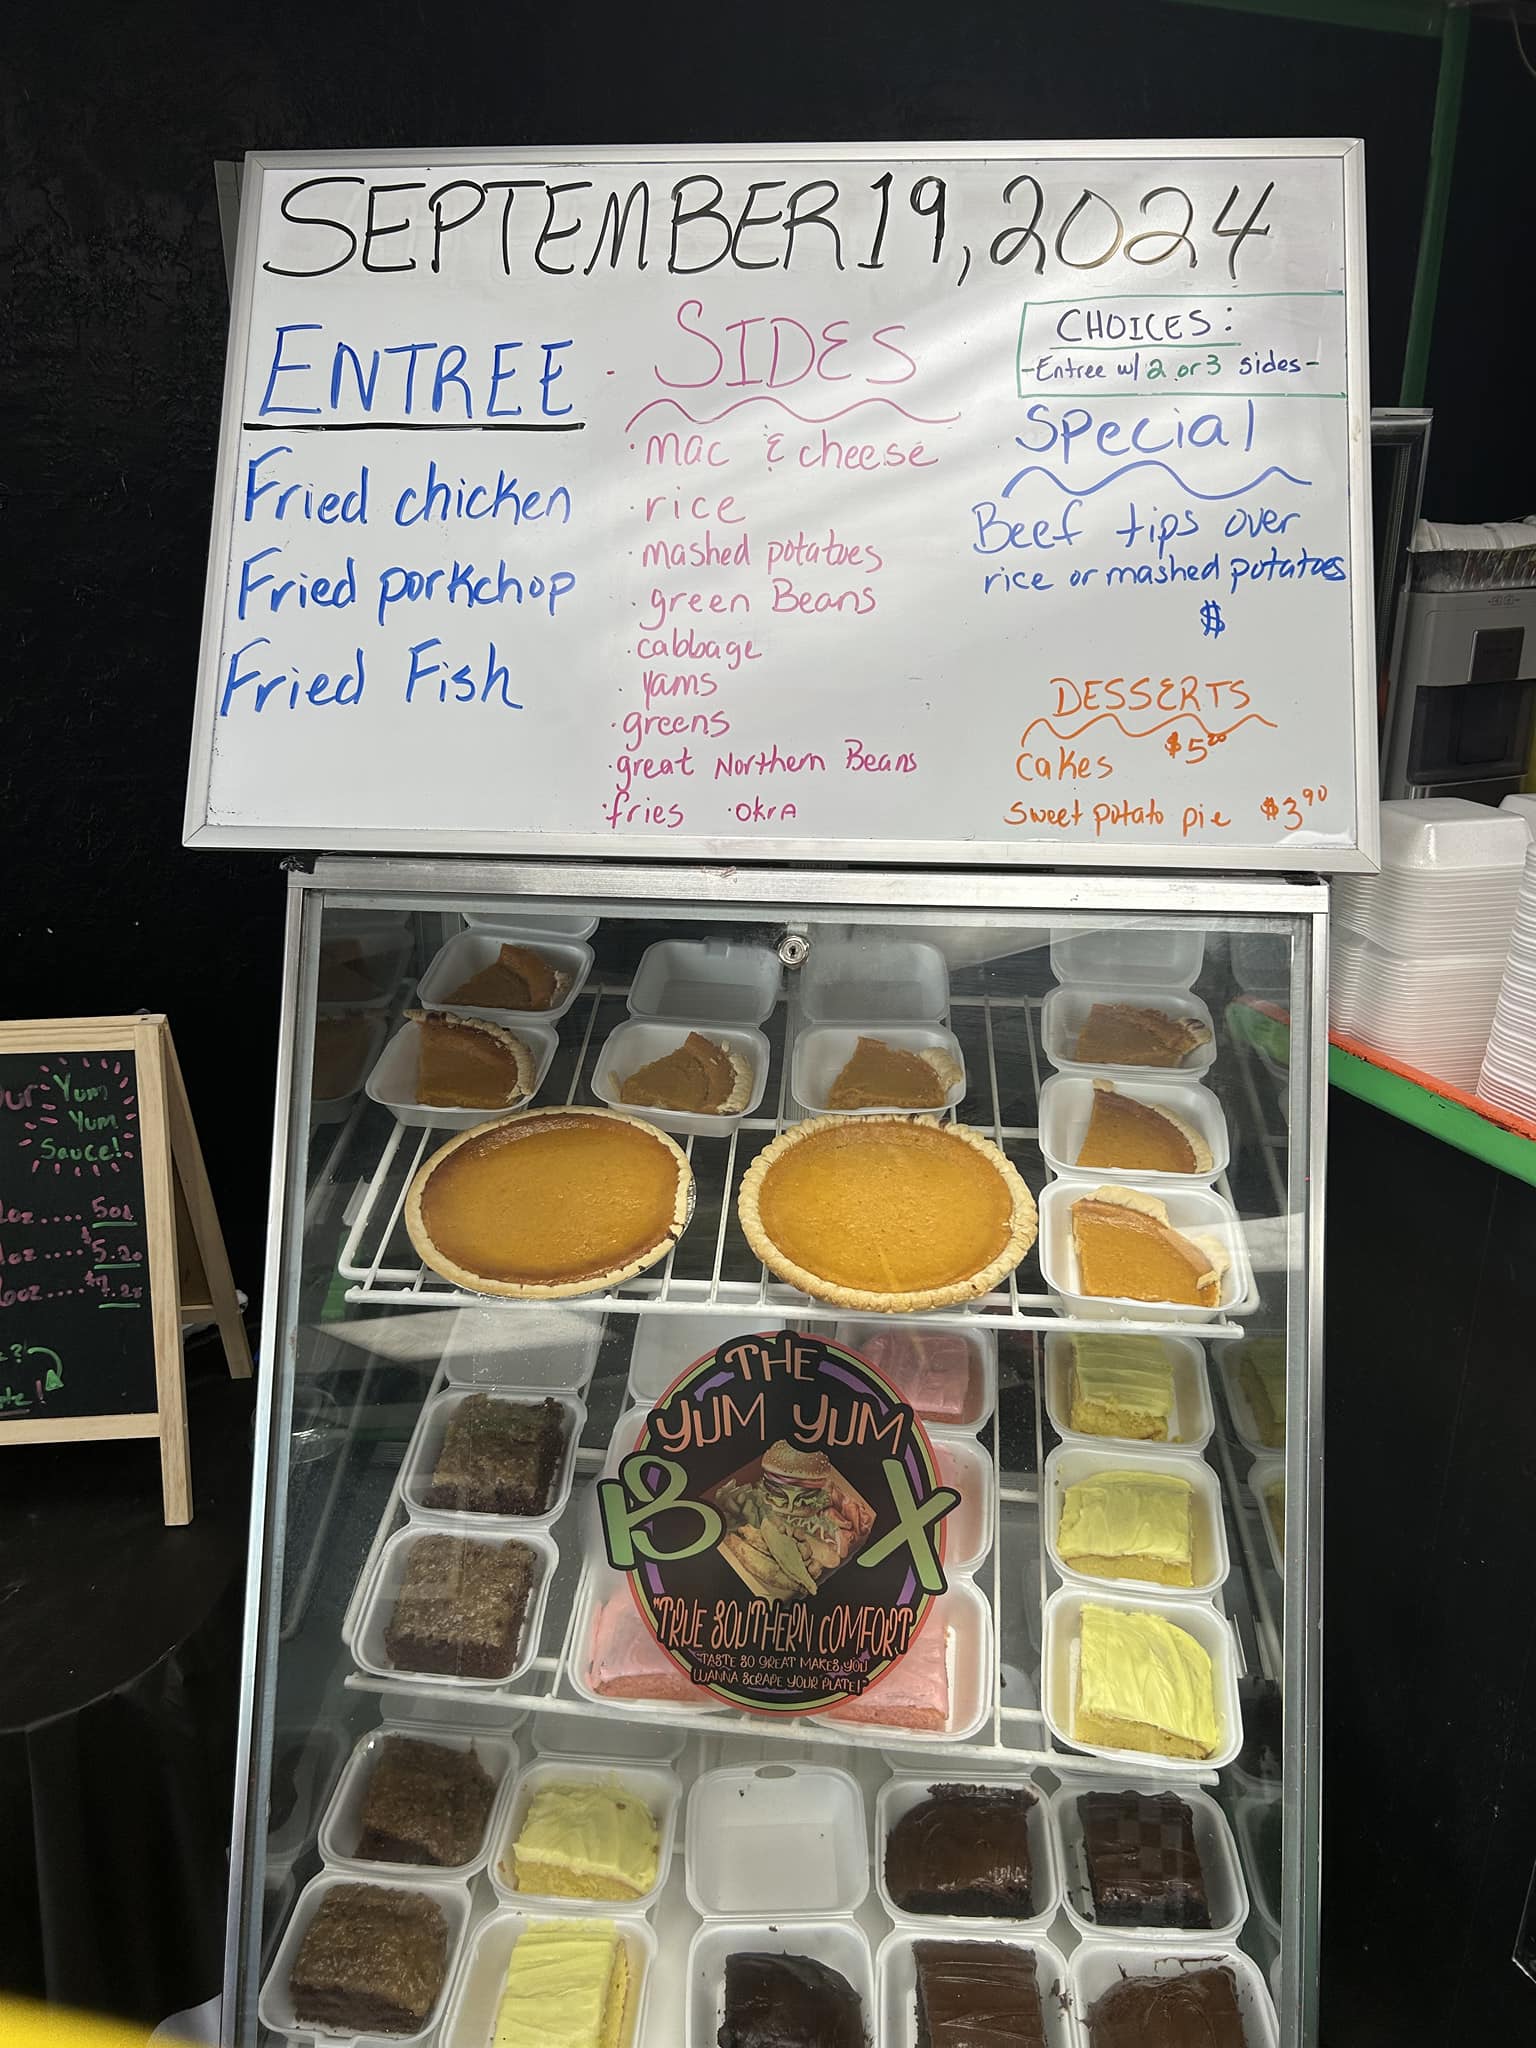 SEPTEMBER 19, 2024
ENTREE
Fried chicken
Fried porkchop
Fried Fish
SIDES
· mac & cheese
· rice
· mashed potatoes
· green Beans
· cabbage
· yams
· greens
· great Northern Beans
· fries · OkrA
CHOICES:
-Entree w/ 2 or 3 sides-
Special
Beef tips over
rice or mashed potatoes
$
DESSERTS
Cakes $5.20
sweet potato pie $3.90
Yum
Yum
Sauce!
oz.... 50¢
oz.... $5.20
6oz... $7.25
THE
YUM YUM
BOX
"TRUE SOUTHERN COMFORT"
"TASTE SO GREAT MAKES YOU
WANNA SCRAPE YOUR PLATE!"